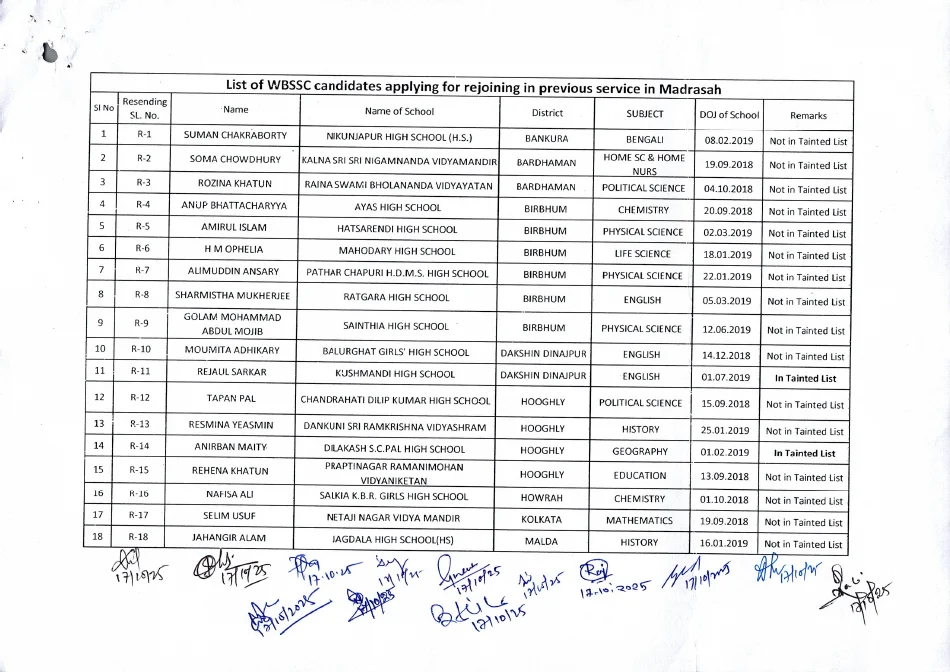 List of WBSSC candidates applying for rejoining in previous service in Madrasah
Sl No Resending SL. No. Name Name of School District SUBJECT DOJ of School Remarks
1 R-1 SUMAN CHAKRABORTY NIKUNJAPUR HIGH SCHOOL (H.S.) BANKURA BENGALI 08.02.2019 Not in Tainted List
2 R-2 SOMA CHOWDHURY KALNA SRI SRI NIGAMNANDA VIDYAMANDIR BARDHAMAN HOME SC & HOME NURS 19.09.2018 Not in Tainted List
3 R-3 ROZINA KHATUN RAINA SWAMI BHOLANANDA VIDYAYATAN BARDHAMAN POLITICAL SCIENCE 04.10.2018 Not in Tainted List
4 R-4 ANUP BHATTACHARYYA AYAS HIGH SCHOOL BIRBHUM CHEMISTRY 20.09.2018 Not in Tainted List
5 R-5 AMIRUL ISLAM HATSARENDI HIGH SCHOOL BIRBHUM PHYSICAL SCIENCE 02.03.2019 Not in Tainted List
6 R-6 H M OPHELIA MAHODARY HIGH SCHOOL BIRBHUM LIFE SCIENCE 18.01.2019 Not in Tainted List
7 R-7 ALIMUDDIN ANSARY PATHAR CHAPURI H.D.M.S. HIGH SCHOOL BIRBHUM PHYSICAL SCIENCE 22.01.2019 Not in Tainted List
8 R-8 SHARMISTHA MUKHERJEE RATGARA HIGH SCHOOL BIRBHUM ENGLISH 05.03.2019 Not in Tainted List
9 R-9 GOLAM MOHAMMAD ABDUL MOJIB SAINTHIA HIGH SCHOOL BIRBHUM PHYSICAL SCIENCE 12.06.2019 Not in Tainted List
10 R-10 MOUMITA ADHIKARY BALURGHAT GIRLS' HIGH SCHOOL DAKSHIN DINAJPUR ENGLISH 14.12.2018 Not in Tainted List
11 R-11 REJAUL SARKAR KUSHMANDI HIGH SCHOOL DAKSHIN DINAJPUR ENGLISH 01.07.2019 In Tainted List
12 R-12 TAPAN PAL CHANDRAHATI DILIP KUMAR HIGH SCHOOL HOOGHLY POLITICAL SCIENCE 15.09.2018 Not in Tainted List
13 R-13 RESMINA YEASMIN DANKUNI SRI RAMKRISHNA VIDYASHRAM HOOGHLY HISTORY 25.01.2019 Not in Tainted List
14 R-14 ANIRBAN MAITY DILAKASH S.C.PAL HIGH SCHOOL HOOGHLY GEOGRAPHY 01.02.2019 In Tainted List
15 R-15 REHENA KHATUN PRAPTINAGAR RAMANIMOHAN VIDYANIKETAN HOOGHLY EDUCATION 13.09.2018 Not in Tainted List
16 R-16 NAFISA ALI SALKIA K.B.R. GIRLS HIGH SCHOOL HOWRAH CHEMISTRY 01.10.2018 Not in Tainted List
17 R-17 SELIM USUF NETAJI NAGAR VIDYA MANDIR KOLKATA MATHEMATICS 19.09.2018 Not in Tainted List
18 R-18 JAHANGIR ALAM JAGDALA HIGH SCHOOL(HS) MALDA HISTORY 16.01.2019 Not in Tainted List
17/10/25 17/10/25 17.10.25 17/10/25 17/10/25 17/10/25 17.10.2025 17/10/2025 17/10/25 17/10/25
17/10/2025 17/10/25 17/10/25